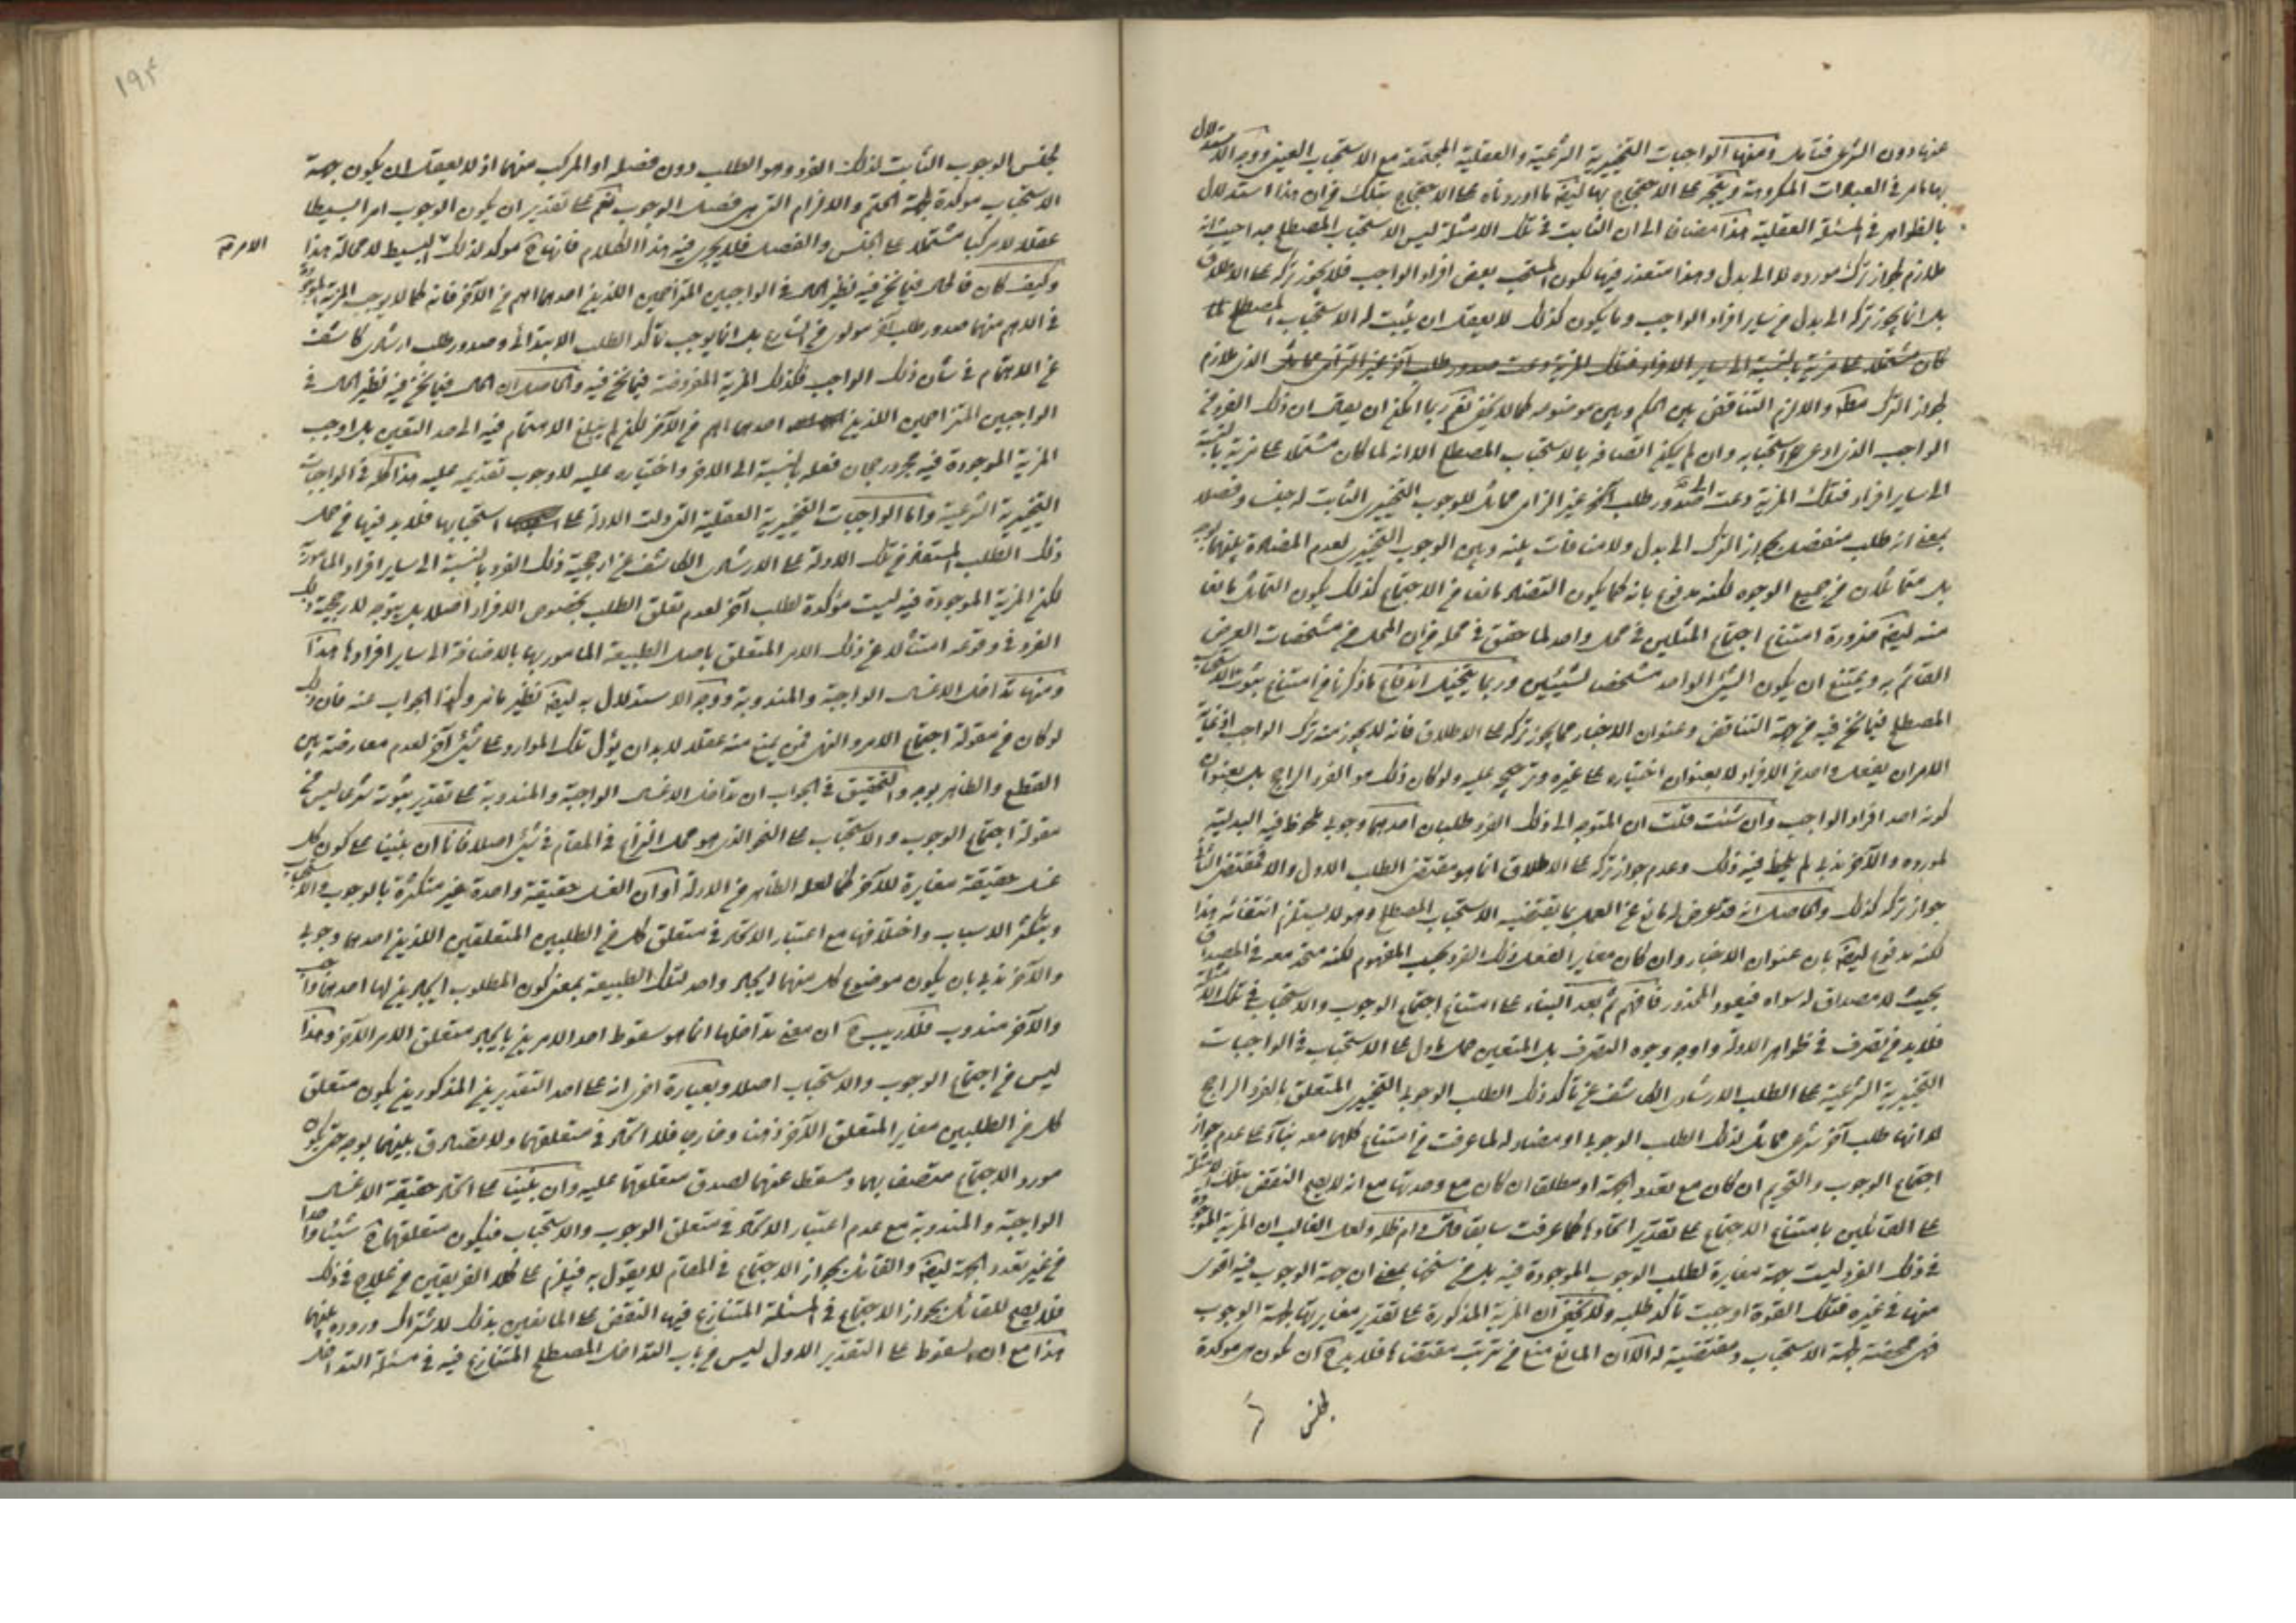 عنها دون الشرعى فتامل ومنها الواجبات التخييرية الشرعية والعقلية المجتمعة مع الاستحباب العينى ووجه الاستدلال
بها مامر فى العبادات المكروهة ويتجه على الاحتجاج بها ايضا ما اوردناه على الاحتجاج بتلك من ان هذا استدلال
بالظواهر فى المسئلة العقلية هذا مضافا الى ان الثابت فى تلك الامثلة ليس الاستحباب المصطلح جدا حيث انه
ملازم لجواز ترك مورده لا الى بدل وهذا متعذر فيها لكون المستحب بعض افراد الواجب فلا يجوز تركه على الاطلاق
بل انما يجوز تركه الى بدل من ساير افراد الواجب وما يكون كذلك لا يعقل ان يثبت له الاستحباب المصطلح
كان مشتملا على مزية بالنسبة الى ساير الافراد فتلك المزية دعت صدور طلب آخر غير الزامى مماثل الذى ملازم
لجواز الترك مطلقا والا لزم التناقض بين الحكم وبين موضوعه كما لا يخفى نعم ربما امكن ان يقال ان ذلك الفرد من
الواجب الذى ادعى استحبابه وان لم يكن اتصافه بالاستحباب المصطلح الا انه لما كان مشتملا على مزية بالنسبة
الى ساير افراده فتلك المزية دعت الى صدور طلب آخر غير الزامى مماثل للوجوب التخييرى الثابت له جنسا وفصلا
بمعنى انه طلب منفصل بجواز الترك الى بدل ولا منافات بينه وبين الوجوب التخييرى لعدم المضادة بينهما بوجه
بل متماثلان من جميع الوجوه لكنه مدفوع بانه كما يكون التضاد مانعا من الاجتماع كذلك يكون التماثل مانعا
منه ايضا ضرورة امتناع اجتماع المثلين فى محل واحد لما حقق فى محله من ان المحل من مشخصات العرض
القائم به ويمتنع ان يكون الشئ الواحد مشخصا لشيئين وربما يتخيل اندفاع ما ذكرنا من امتناع ثبوت الاستحباب
المصطلح فيما نحن فيه من جهة التناقض وعنوان الاختيار مما يجوز تركه على الاطلاق فانه لا يجوز منه ترك الواجب اذ غاية
الامر ان يفعل واحد من الافراد لا بعنوان اختياره على غيره وترجيحه عليه ولو كان ذلك هو الفرد الراجح بل بعنوان
كونه احد افراد الواجب وان شئت قلت ان المتوجه الى ذلك الفرد طلبان احدهما وجوبى ملحوظ فيه البدلية
لمورده والآخر ندبى لم يلحظ فيه ذلك وعدم جواز تركه على الاطلاق انما هو مقتضى الطلب الاول والا فمقتضى الثانى
جواز تركه كذلك والحاصل انه قد عرض له مانع عن العمل بما يقتضيه الاستحباب المصطلح وهو لا يستلزم انتفائه هذا
لكنه مدفوع ايضا بان عنوان الاختيار وان كان مغايرا لفعل ذلك الفرد بحسب المفهوم لكنه متحد معه فى المصداق
بحيث لا مصداق له سواه فيعود المحذور فافهم ثم بعد البناء على امتناع اجتماع الوجوب والاستحباب فى تلك الامثلة
فلا بد من تصرف فى ظواهر الادلة واوجه وجوه التصرف بل المتعين حمل ما دل على الاستحباب فى الواجبات
التخييرية الشرعية على الطلب الارشادى الكاشف عن تأكد ذلك الطلب الوجوبى التخييرى المتعلق بالفرد الراجح
لا انها طلب آخر شرعى مماثل لذلك الطلب الوجوبى او مضاد له لما عرفت من امتناع كلهما معه بناء على عدم جواز
اجتماع الوجوب والتحريم ان كان مع تعدد الجهة او مطلقا ان كان مع وحدتها مع انه لا يصح النقض بتلك الامثلة
على القائلين بامتناع الاجتماع على تقدير اتحادها كما عرفت سابقا ولعل الغالب ان المزية الموجودة
فى ذلك الفرد ليست جهة مغايرة لطلب الوجوب الموجودة فيه بل من سنخها بمعنى ان جهة الوجوب فيه اقوى
منها فى غيره فتلك القوة اوجبت تأكد طلبه ولا يخفى ان المزية المذكورة على تقدير مغايرتها لجهة الوجوب
فهى محضة لجهة الاستحباب ومقتضية له الا ان المانع منع من ترتب مقتضاها فلا بد ح ان يكون هى موكدة
لجنس
١٩٤
لجنس الوجوب الثابت لذلك الفرد وهو الطلب دون فصله او المركب منهما اذ لا يعقل ان يكون جهة
الاستحباب موكدة لجهة الحتم والالزام التى هى فصل الوجوب نعم على تقدير ان يكون الوجوب امرا بسيطا
عقلا لا مركبا مشتملا على الجنس والفصل فلا يجرى فيه هذا الكلام فانها ح موكد لذلك البسيط لا محالة هذا
الامر
وكيف كان فالحال فيما نحن فيه نظير الحال فى الواجبين المتزاحمين اللذين احدهما اهم من الآخر فانه كما لا يوجب المزية الموجودة
فى الاهم منهما صدور طلب آخر مولوى من الشارع بل انما يوجب تأكد الطلب الابتدائى وصدور طلب ارشادى كاشف
عن الاهتمام فى شأن ذلك الواجب فكذلك المزية المفروضة فيما نحن فيه والحاصل ان الحال فيما نحن فيه نظير الحال فى
الواجبين المتزاحمين اللذين احدهما اهم من الآخر لكن لم يبلغ الاهتمام فيه الى حد التعين بل اوجب
المزية الموجودة فيه مجرد رجحان فعله بالنسبة الى الآخر واختياره عليه لا وجوب تقديمه عليه هذا كله فى الواجبات
التخييرية الشرعية واما الواجبات التخييرية العقلية التى دلت الادلة على استحبابها فلا بد فيها من حمل
ذلك الطلب المستفاد من تلك الادلة على الارشادى الكاشف عن ارجحية ذلك الفرد بالنسبة الى ساير افراد المامور به
لكن المزية الموجودة فيه ليست مؤكدة لطلب آخر لعدم تعلق الطلب بخصوص الافراد اصلا بل يتوجه لارجحية ذلك
الفرد فى وقوعه امتثالا عن ذلك الامر المتعلق باصل الطبيعة المامور بها بالاضافة الى ساير افرادها هذا
ومنها تداخل الاغسال الواجبة والمندوبة ووجه الاستدلال به ايضا نظير ما مر وكذا الجواب عنه فان ذلك
لو كان من مقولة اجتماع الامر والنهى فمن يمنع منه عقلا لا بد ان يؤل تلك الموارد على شئ آخر لعدم معارضته بين
القطع والظاهر بوجه والتحقيق فى الجواب ان تداخل الاغسال الواجبة والمندوبة على تقدير ثبوته شرعا ليس من
مقولة اجتماع الوجوب والاستحباب على النحو الذى هو محل النزاع فى المقام فى شئ اصلا فانا ان بنينا على كون كل
غسل حقيقة مغايرة للآخر كما لعله الظاهر من الادلة او ان الغسل حقيقة واحدة غير متكثرة بالوجوب والاستحباب
وبتكثر الاسباب واختلافها مع اعتبار الاتحاد فى متعلق كل من الطلبين المتعلقين اللذين احدهما وجوبى
والآخر ندبى بان يكون موضوع كل منهما ايجاد واحد لتلك الطبيعة بمعنى كون المطلوب ايجادين لها احدهما واجب
والآخر مندوب فلا ريب ح ان معنى تداخلها انما هو سقوط احد الامرين بايجاد متعلق الامر الآخر وهذا
ليس من اجتماع الوجوب والاستحباب اصلا وبعبارة اخرى انه على احد التقديرين المذكورين يكون متعلق
كل من الطلبين مغايرا لمتعلق الآخر ذهنا وخارجا فلا اتحاد فى متعلقهما ولا تصادق بينهما بوجه حتى يكون
مورد الاجتماع متصفا بهما ومسقطا عنهما لصدق متعلقهما عليه وان بنينا على اتحاد حقيقة الاغسال
الواجبة والمندوبة مع عدم اعتبار الاتحاد فى متعلق الوجوب والاستحباب فيكون متعلقهما ح شيئا واحدا
من غير تعدد الجهة ايضا والقائل بجواز الاجتماع فى المقام لا يقول به فيلزم على كلا الفريقين من علاج فى ذلك
فلا يصح للقائل بجواز الاجتماع فى المسئلة المتنازع فيها النقض على المانعين بذلك لاشتراك وروده بينهما
هذا مع ان السقوط على التقدير الاول ليس من باب التداخل المصطلح المتنازع فيه فى مسئلة التداخل